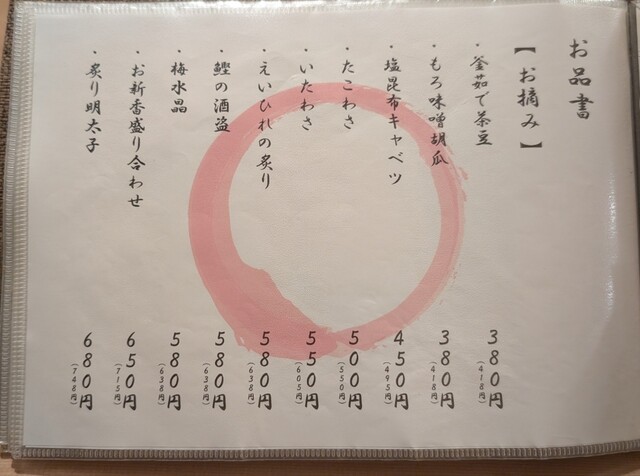 お品書
【お摘み】
・釜茹で茶豆 380円（418円）
・もろ味噌胡瓜 380円（418円）
・塩昆布キャベツ 450円（495円）
・たこわさ 500円（550円）
・いたわさ 550円（605円）
・えいひれの炙り 580円（638円）
・鰹の酒盗 580円（638円）
・梅水晶 580円（638円）
・お新香盛り合わせ 650円（715円）
・炙り明太子 680円（748円）